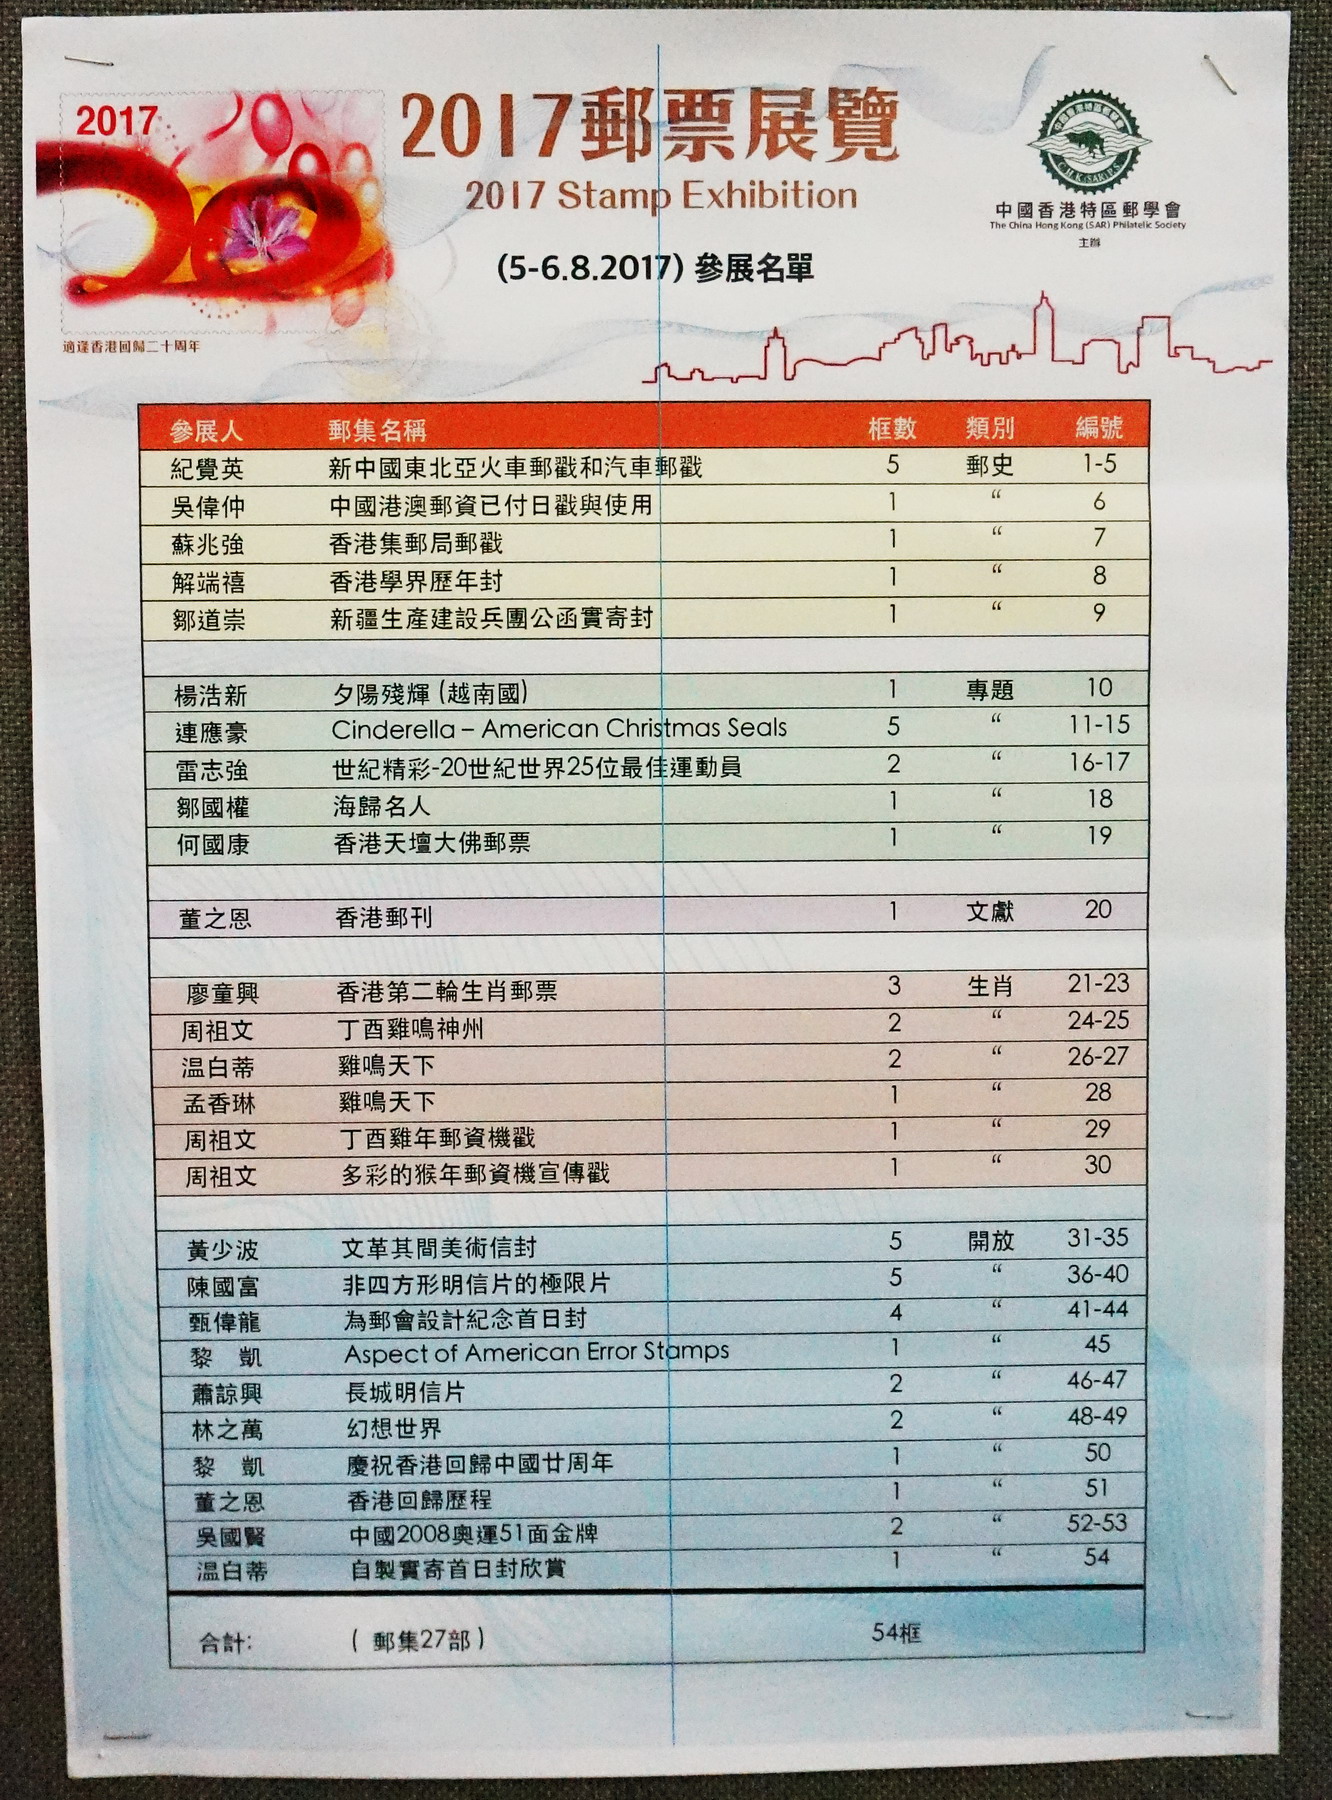 2017
適逢香港回歸二十周年
2017郵票展覽
2017 Stamp Exhibition
(5-6.8.2017) 參展名單
中國香港特區郵學會
The China Hong Kong (SAR) Philatelic Society
主辦
參展人 郵集名稱 框數 類別 編號
紀覺英 新中國東北亞火車郵戳和汽車郵戳 5 郵史 1-5
吳偉仲 中國港澳郵資已付日戳與使用 1 “ 6
蘇兆強 香港集郵局郵戳 1 “ 7
解端禧 香港學界歷年封 1 “ 8
鄒道崇 新疆生產建設兵團公函實寄封 1 “ 9
楊浩新 夕陽殘輝 (越南國) 1 專題 10
連應豪 Cinderella – American Christmas Seals 5 “ 11-15
雷志強 世紀精彩-20世紀世界25位最佳運動員 2 “ 16-17
鄒國權 海歸名人 1 “ 18
何國康 香港天壇大佛郵票 1 “ 19
董之恩 香港郵刊 1 文獻 20
廖童興 香港第二輪生肖郵票 3 生肖 21-23
周祖文 丁酉雞鳴神州 2 “ 24-25
温白蒂 雞鳴天下 2 “ 26-27
孟香琳 雞鳴天下 1 “ 28
周祖文 丁酉雞年郵資機戳 1 “ 29
周祖文 多彩的猴年郵資機宣傳戳 1 “ 30
黃少波 文革其間美術信封 5 開放 31-35
陳國富 非四方形明信片的極限片 5 “ 36-40
甄偉龍 為郵會設計紀念首日封 4 “ 41-44
黎 凱 Aspect of American Error Stamps 1 “ 45
蕭諒興 長城明信片 2 “ 46-47
林之萬 幻想世界 2 “ 48-49
黎 凱 慶祝香港回歸中國廿周年 1 “ 50
董之恩 香港回歸歷程 1 “ 51
吳國賢 中國2008奧運51面金牌 2 “ 52-53
温白蒂 自製實寄首日封欣賞 1 “ 54
合計: ( 郵集27部 ) 54框